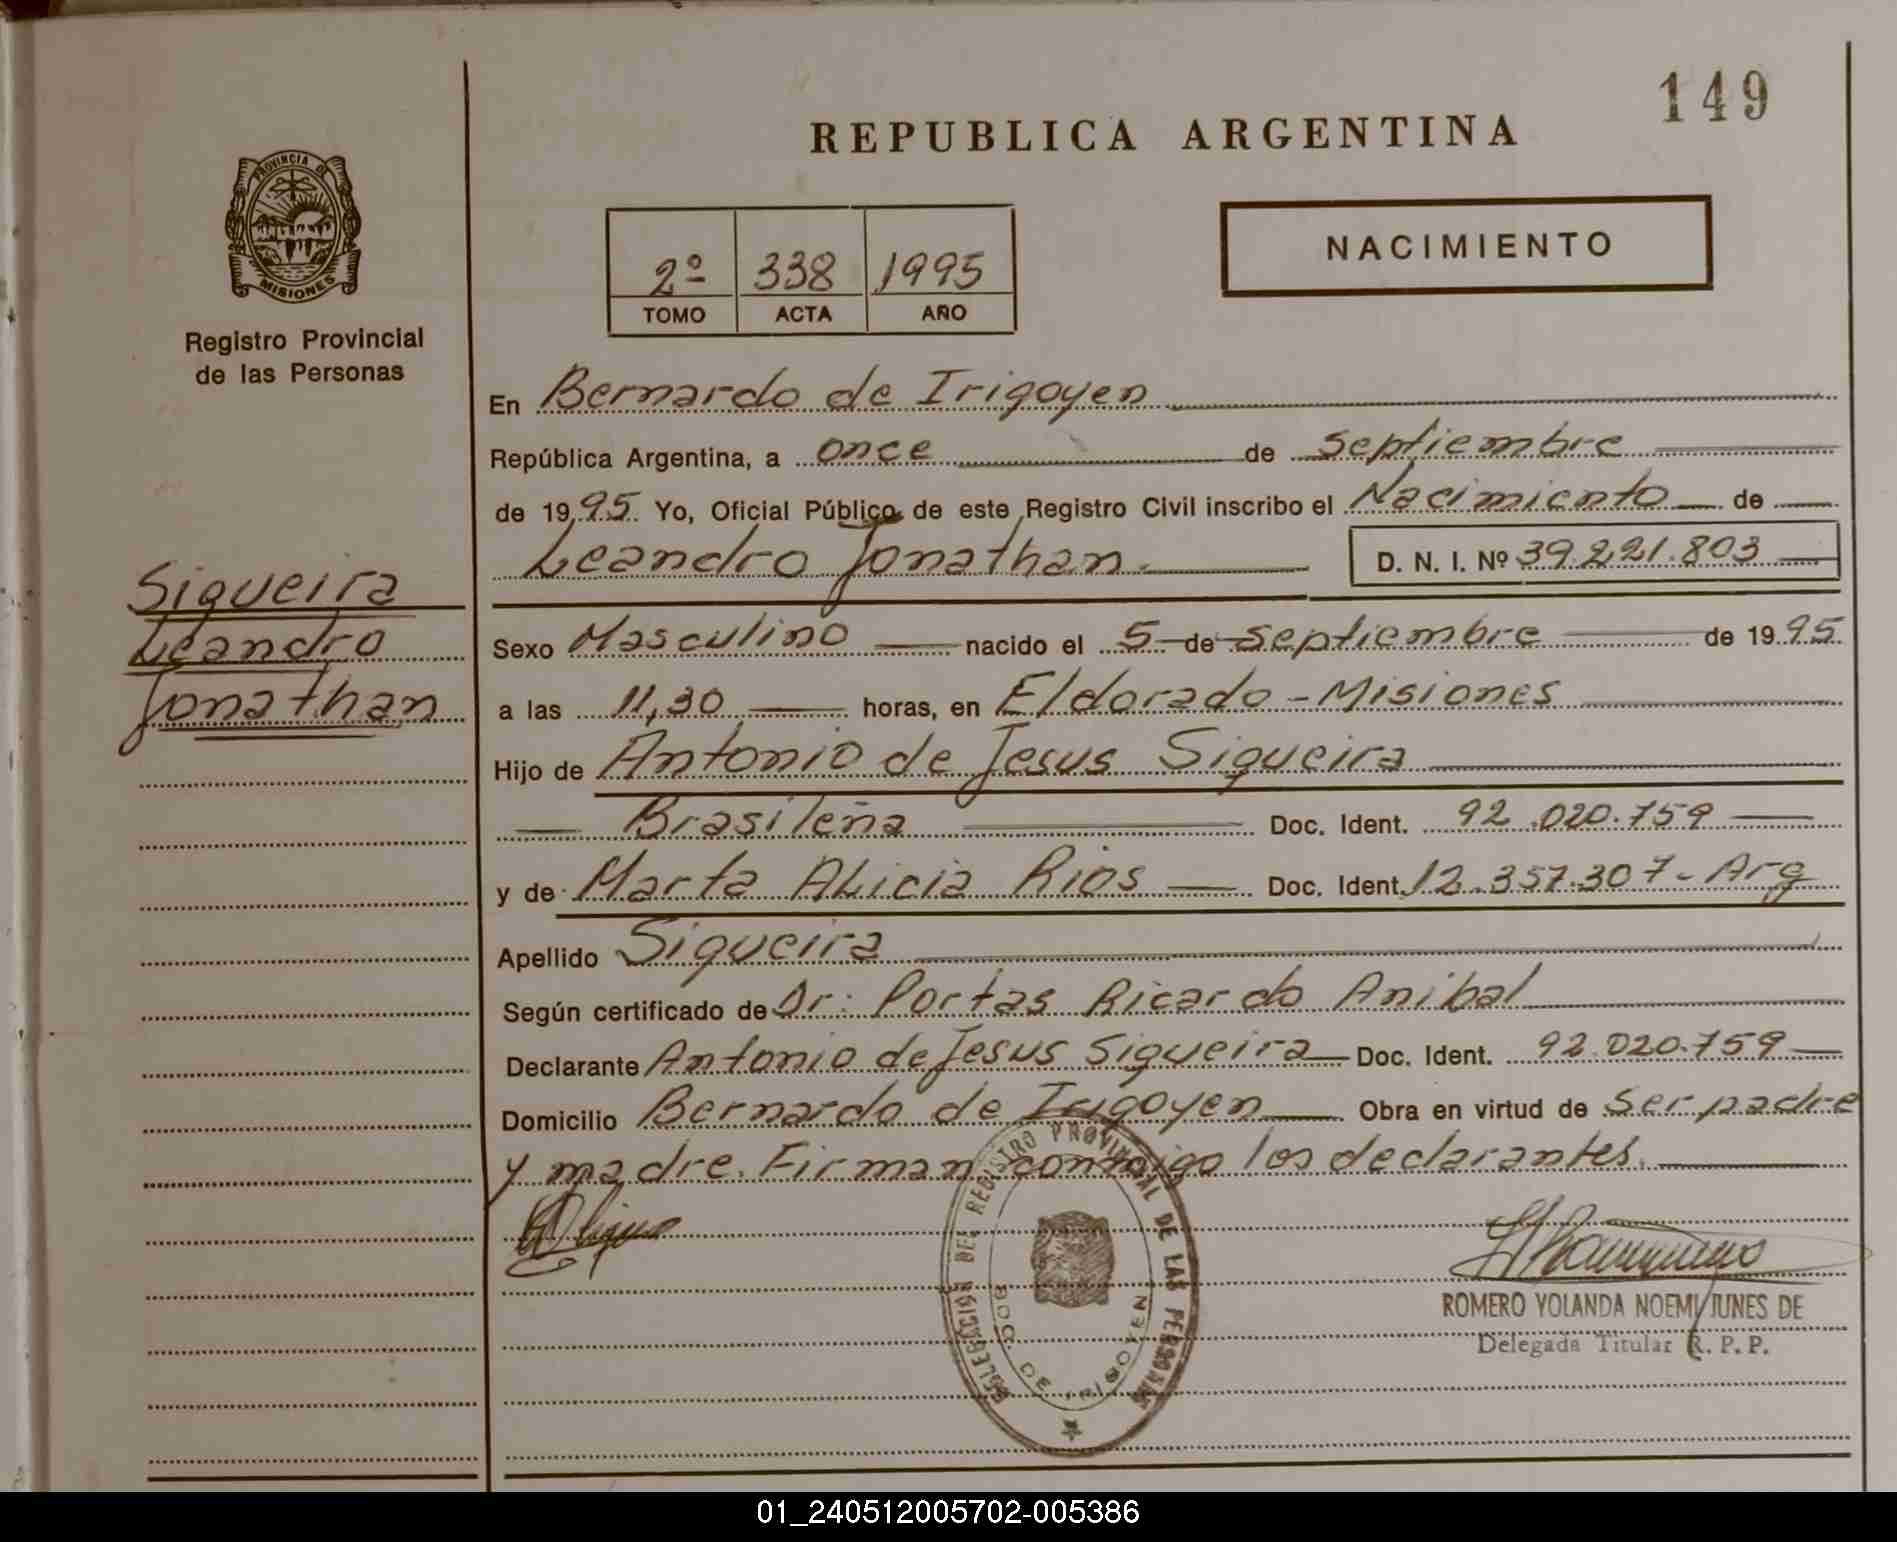 149
REPUBLICA ARGENTINA
PROVINCIA DE
MISIONES
Registro Provincial
de las Personas
2º 338 1995
TOMO ACTA AÑO
NACIMIENTO
En Bernardo de Irigoyen
República Argentina, a once de septiembre
de 1995 Yo, Oficial Público de este Registro Civil inscribo el Nacimiento de
Leandro Jonathan. D. N. I. Nº 39.221.803
Siqueira
Leandro
Jonathan
Sexo Masculino nacido el 5 de septiembre de 1995
a las 11,30 horas, en Eldorado - Misiones
Hijo de Antonio de Jesus Siqueira
Brasileña Doc. Ident. 92.020.759
y de Marta Alicia Rios Doc. Ident. 12.357.307 - Arg
Apellido Siqueira
Según certificado de Dr: Portas Ricardo Anibal
Declarante Antonio de Jesus Siqueira Doc. Ident. 92.020.759
Domicilio Bernardo de Irigoyen Obra en virtud de ser padre
y madre. Firman conmigo los declarantes.
DELEGACION DEL REGISTRO PROVINCIAL DE LAS PERSONAS
BDO. DE IRIGOYEN
ROMERO YOLANDA NOEMI JUNES DE
Delegada Titular R. P. P.
01_240512005702-005386